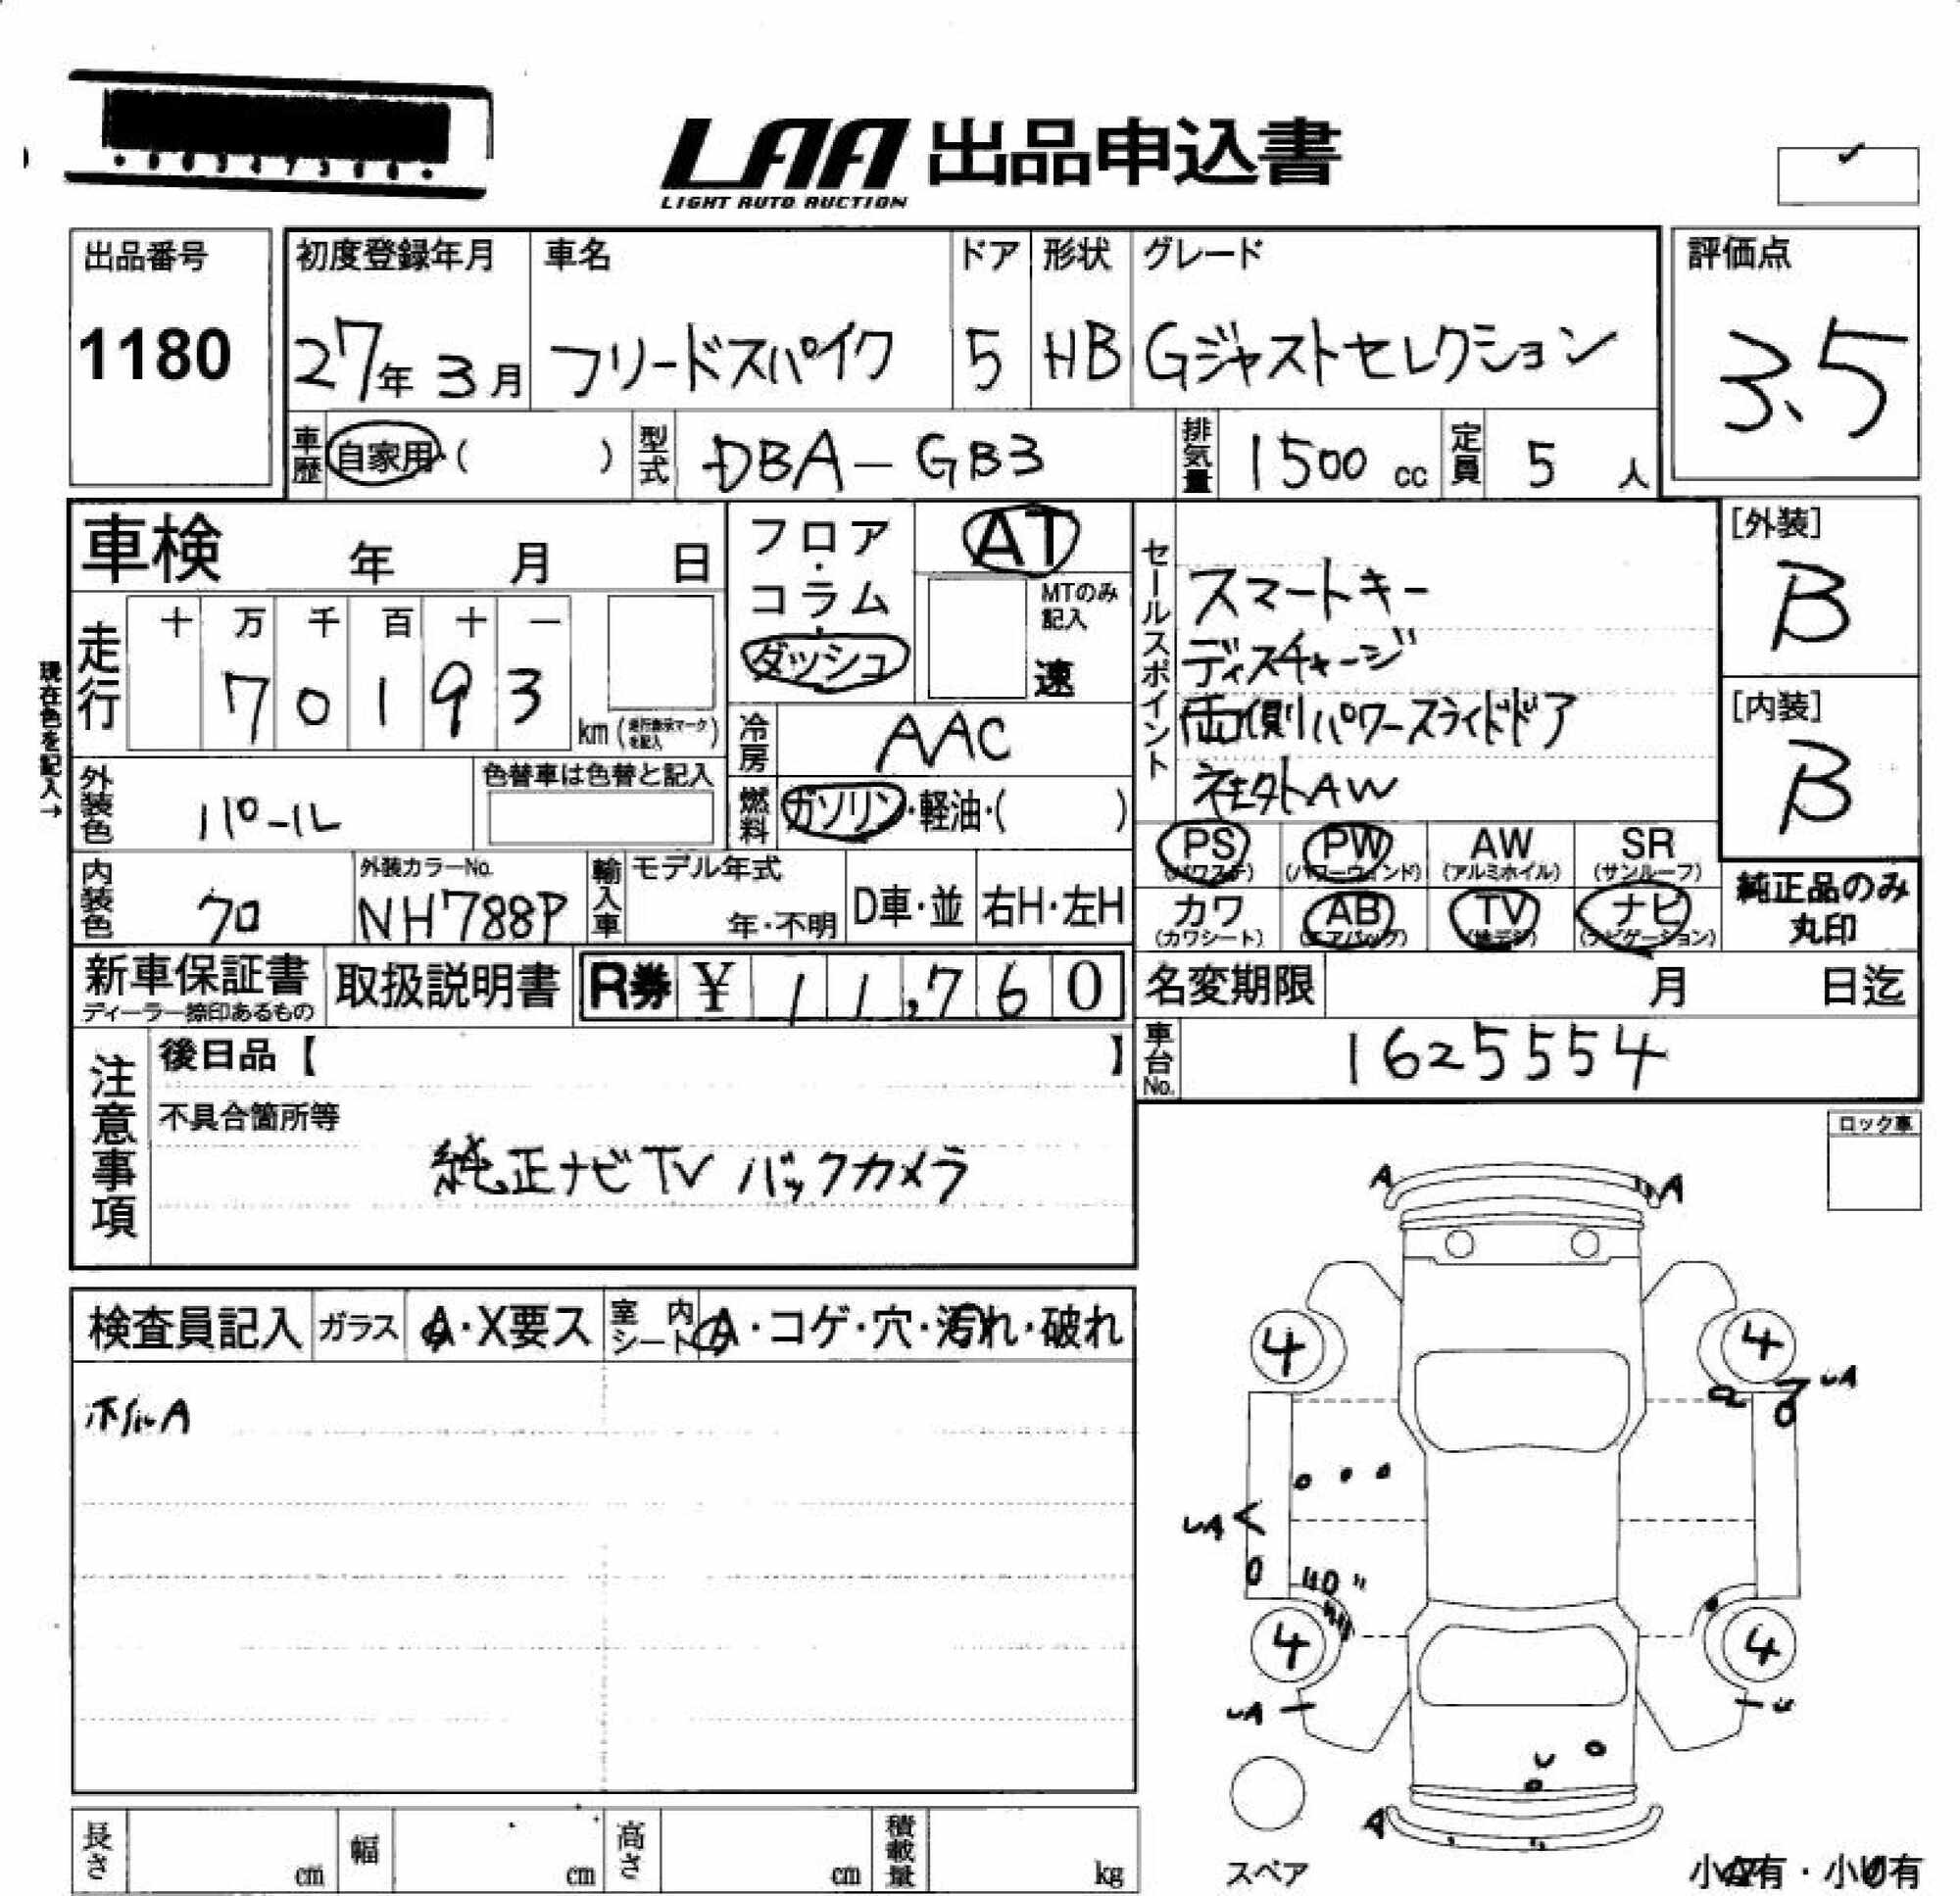 LAA 出品申込書
LIGHT AUTO AUCTION
出品番号
1180
初度登録年月
27年 3月
車名
フリードスパイク
ドア
5
形状
HB
グレード
Gジャストセレクション
評価点
3.5
車歴 自家用・( )
型式 DBA-GB3
排気量 1500 cc
定員 5 人
車検 年 月 日
フロア・コラム・ダッシュ
AT
MTのみ記入
速
セールスポイント
スマートキー
ディスチャージ
両側パワースライドドア
社外AW
[外装]
B
[内装]
B
現在色を記入→
走行
十 万 千 百 十 一
7 0 1 9 3
km (走行表示マークを記入)
冷房 AAC
外装色 パール
色替車は色替と記入
燃料 ガソリン・軽油・( )
PS (パワステ)
PW (パワーウィンド)
AW (アルミホイル)
SR (サンルーフ)
内装色 クロ
外装カラーNo.
NH788P
輸入車
モデル年式
年・不明
D車・並
右H・左H
カワ (カワシート)
AB (エアバック)
TV (地デジ)
ナビ (ナビゲーション)
純正品のみ
丸印
新車保証書
ディーラー捺印あるもの
取扱説明書
R券 ¥ 11,760
名変期限 月 日迄
車台No. 1625554
注意事項
後日品【 】
不具合箇所等
純正ナビTV バックカメラ
ロック車
A
A
検査員記入
ガラス
A・X要ス
室内シート
A・コゲ・穴・汚れ・破れ
ホイルA
4
4
UA
UA
4
4
UA
U
U
A
スペア
長さ cm
幅 cm
高さ cm
積載量 kg
小A有・小U有